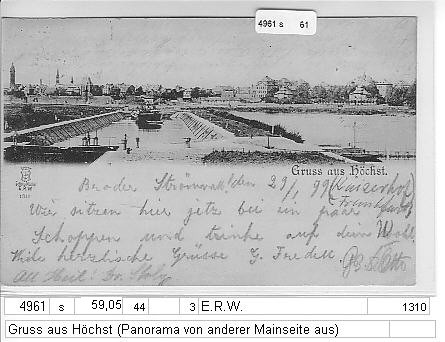 4961 s 61
Gruss aus Höchst.
1310
Bruder den 29/1 99 (Kaiserhof
Wir sitzen hier jetz bei ein paar Frankfurt)
Schoppen und trinke auf dein Wohl
Viele herzliche Grüsse G. Otto
All Heil!
4961 s 59,05 44 3 E.R.W. 1310
Gruss aus Höchst (Panorama von anderer Mainseite aus)